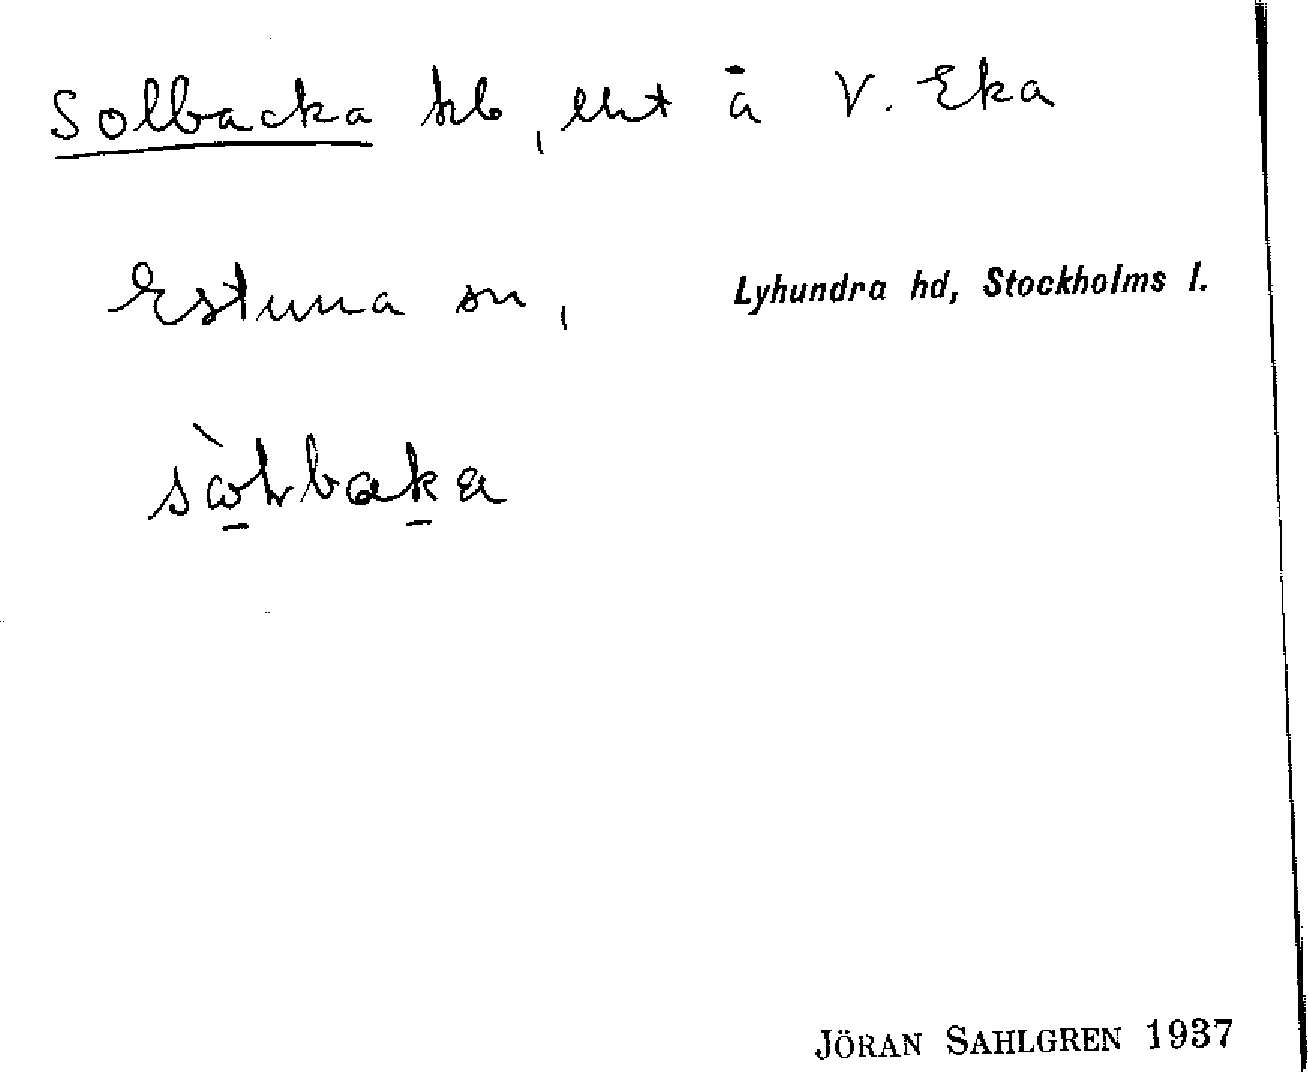 Solbacka hb, lht å V. Eka
Estuna sn, Lyhundra hd, Stockholms l.
JÖRAN SAHLGREN 1937